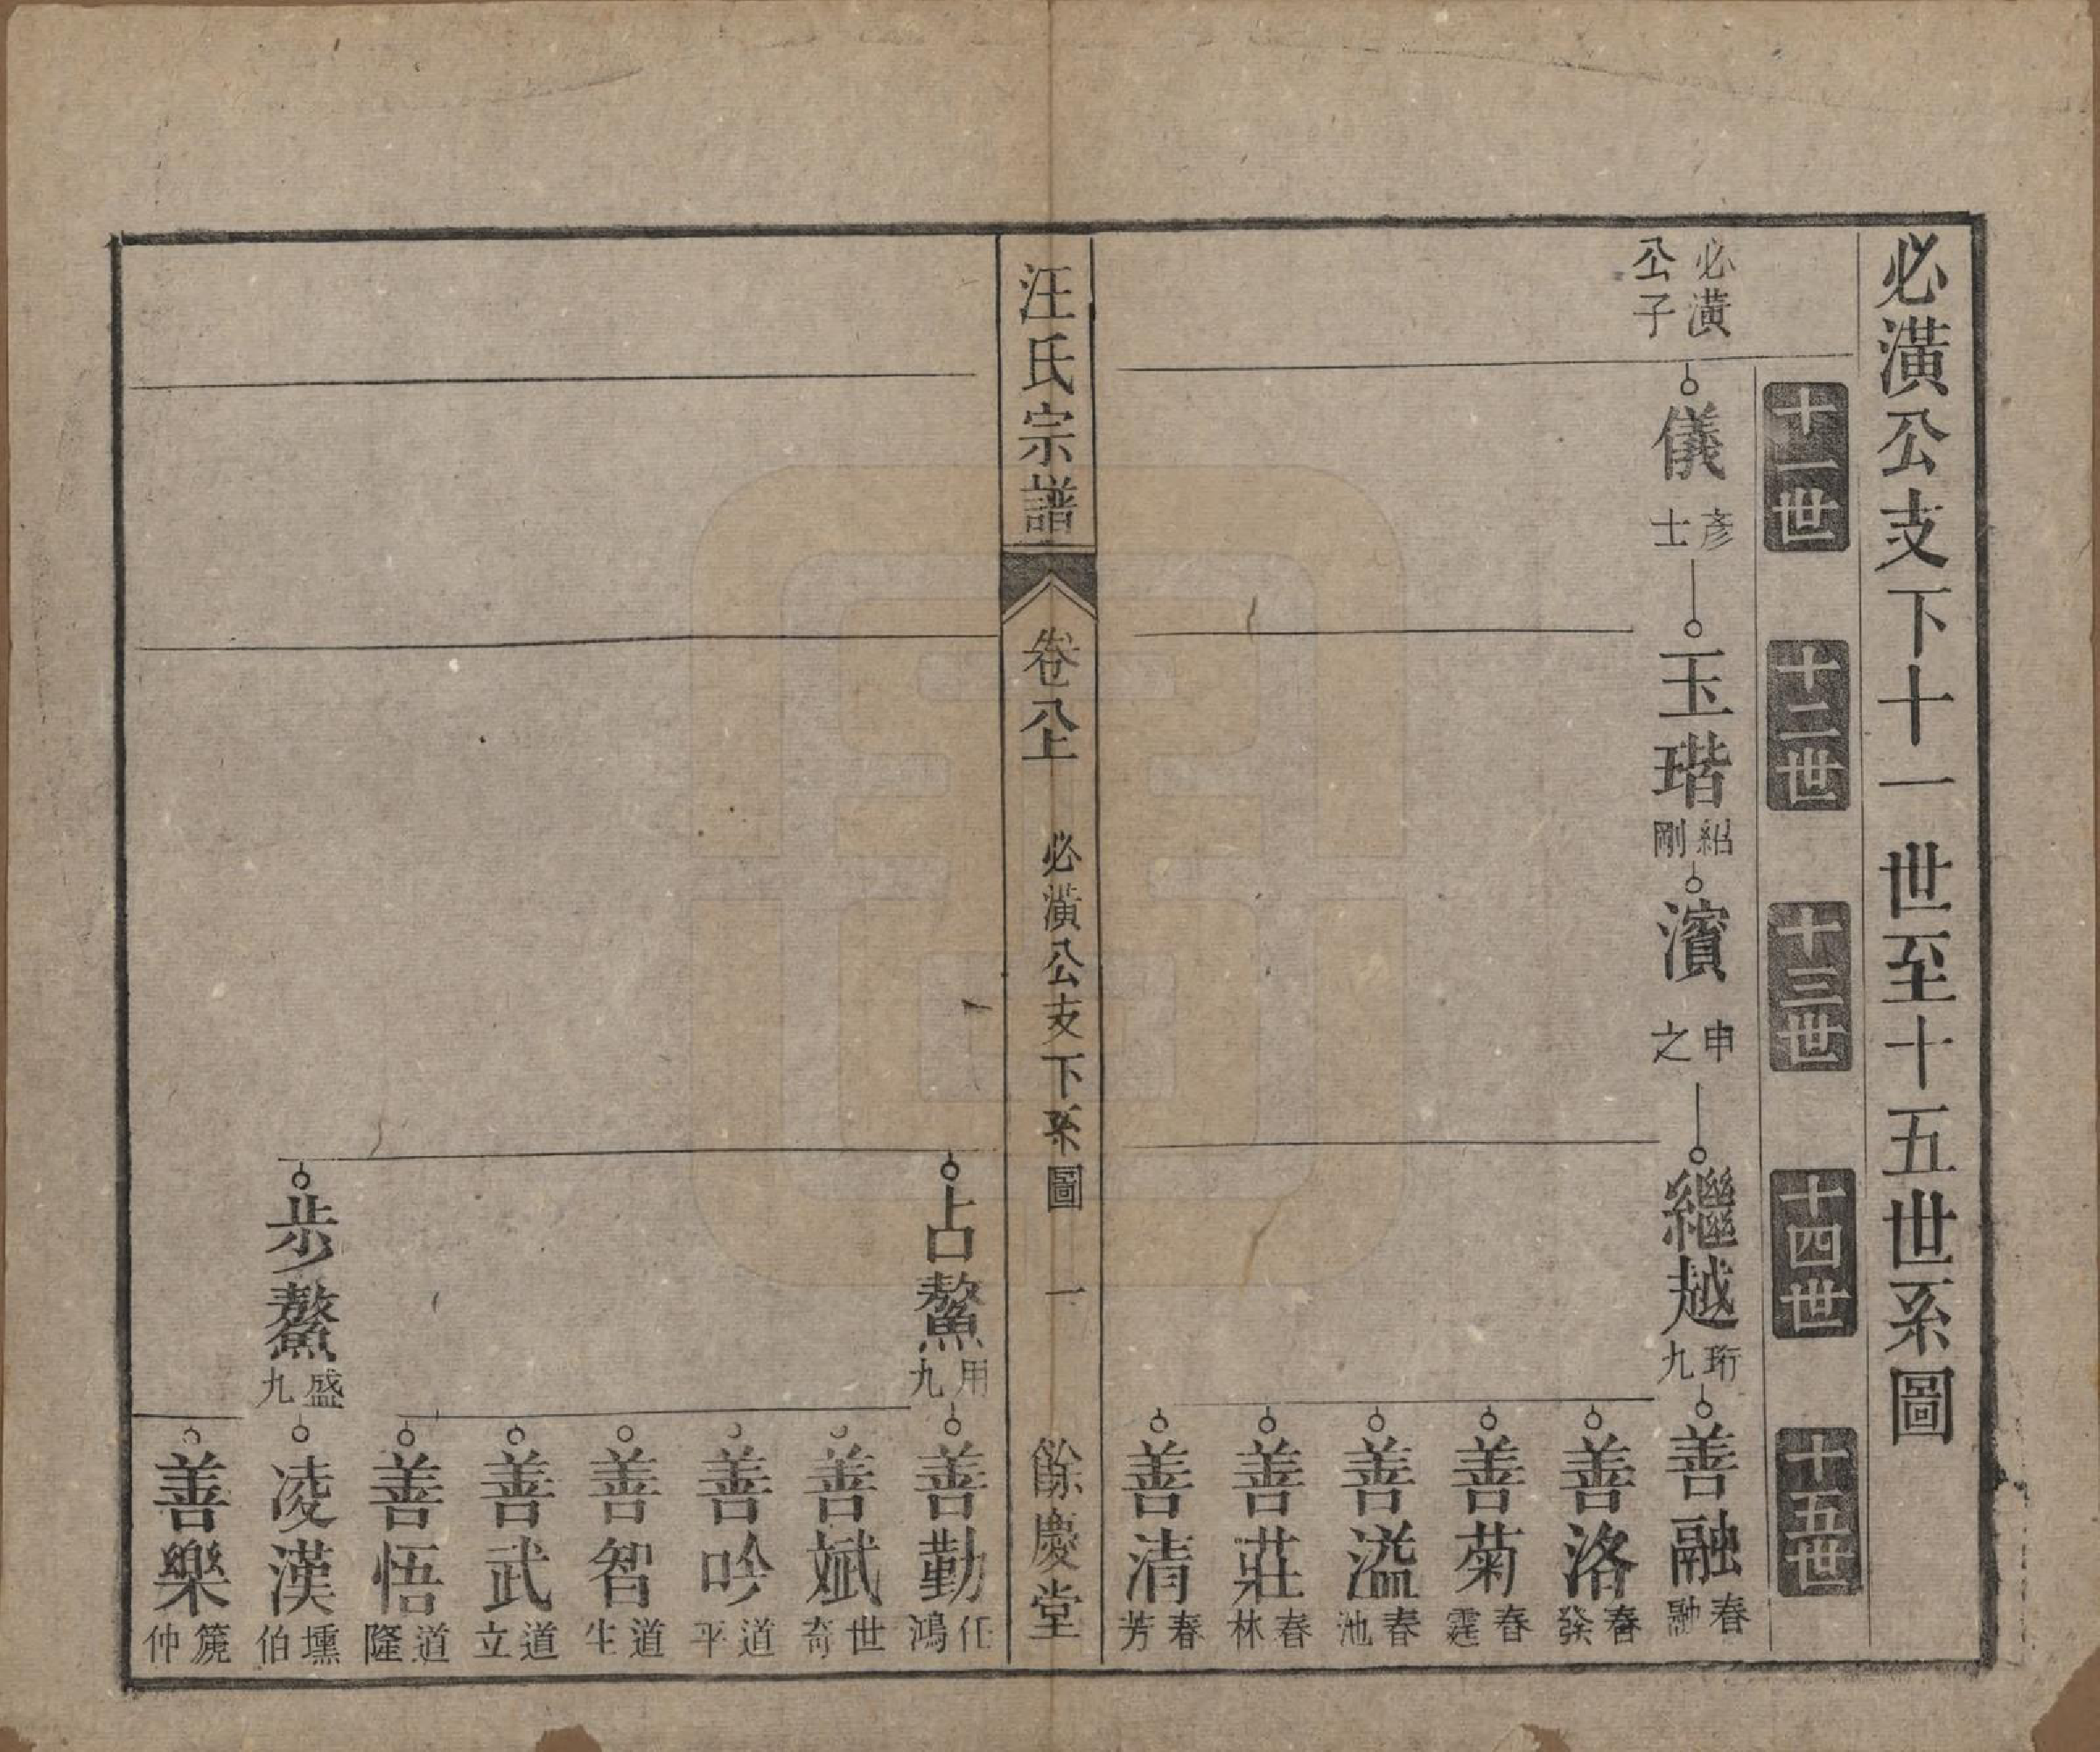 必潢公支下十一世至十五世系圖
十一世
十二世
十三世
十四世
十五世
必潢
公子
儀
彥士
玉瑎
紹剛
濱
申之
繼越
珩九
善融
春融
善洛
春發
善菊
春霆
善溢
春池
善莊
春林
善清
春芳
汪氏宗譜
卷八上
必潢公支下系圖
一
餘慶堂
占鰲
用九
善勤
任鴻
善斌
世奇
善吟
道平
善智
道生
善武
道立
善悟
道隆
步鰲
盛九
凌漢
壎伯
善樂
篪仲